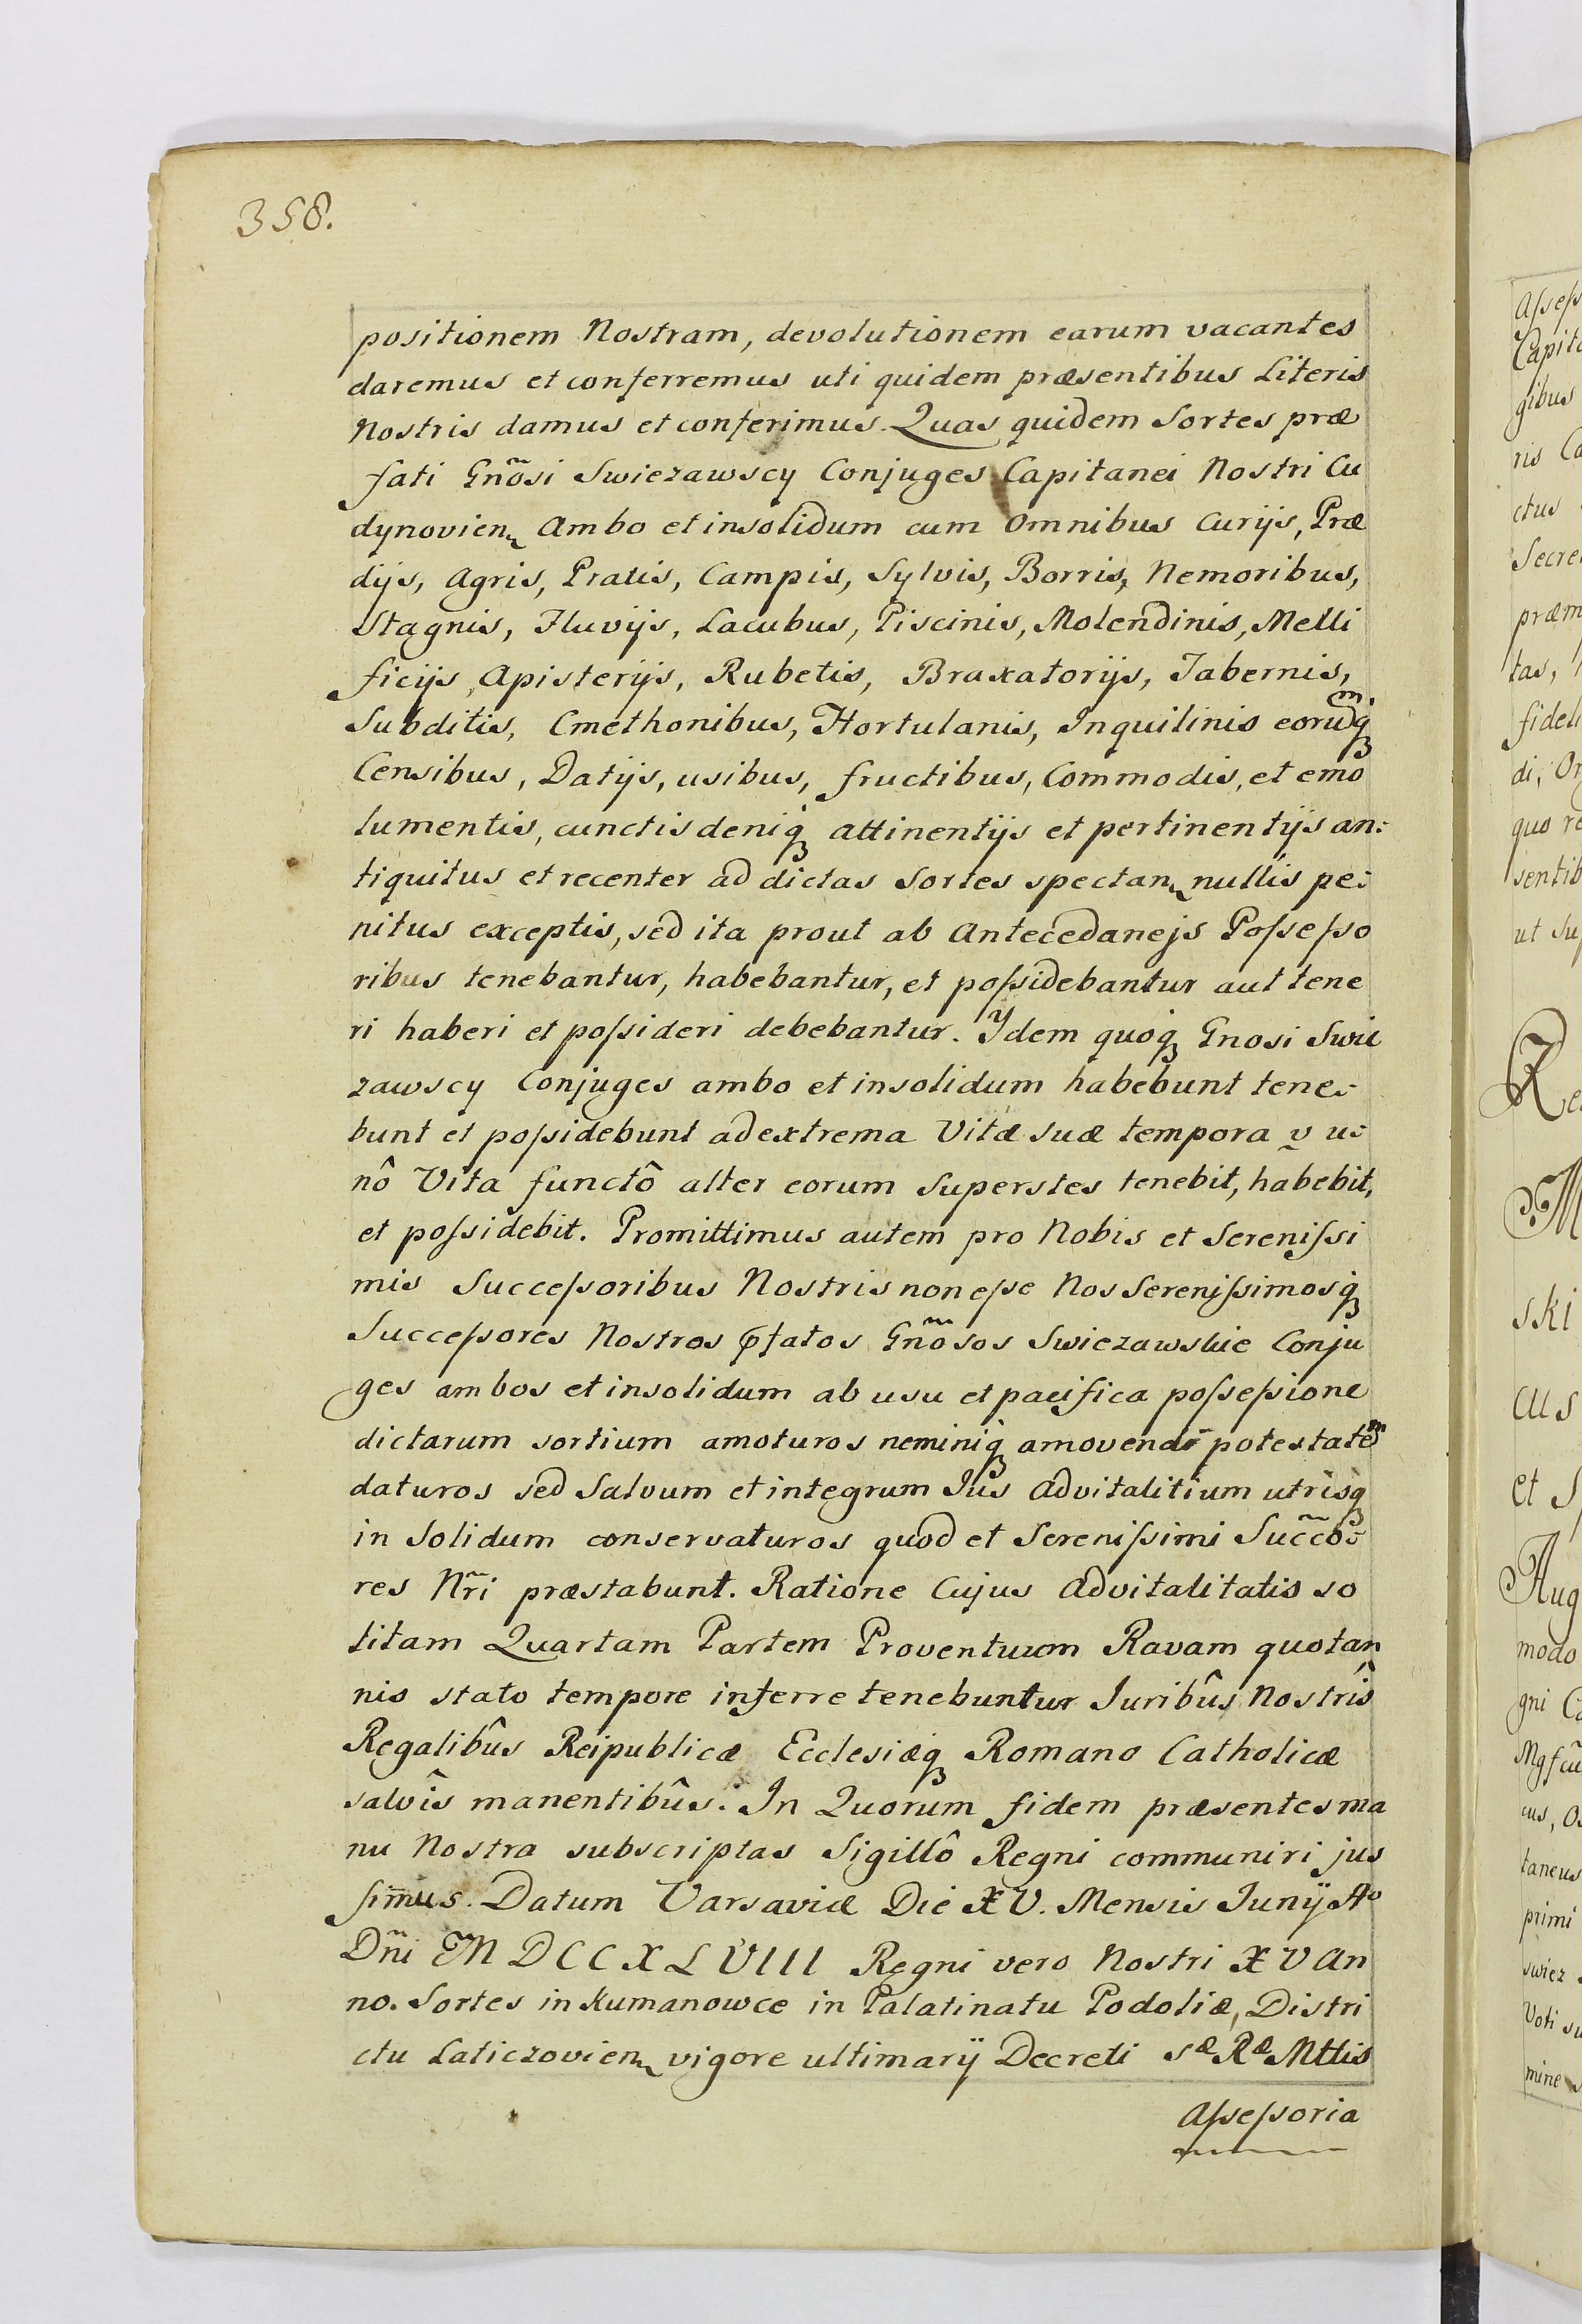 358.
positionem Nostram, devolutionem earum vacantes
daremus et conferremus uti quidem præsentibus Literis
Nostris damus et conferimus. Quas quidem Sortes præ
fati Gñosi Swiezawscy Conjuges Capitanei Nostri Cu
dynovien. Ambo et insolidum cum Omnibus Curijs, Præ
dijs, Agris, Pratis, Campis, Sylvis, Borris, Nemoribus,
Stagnis, Fluvijs, Lacubus, Piscinis, Molendinis, Melli
ficijs, Apisterijs, Rubetis, Braxatorijs, Tabernis,
Subditis, Cmethonibus, Hortulanis, Inquilinis eorumq́
Censibus, Datijs, usibus, fructibus, Commodis, et emo
lumentis, cunctis deniq́ attinentijs et pertinentijs an:
tiquitus et recenter ad dictas Sortes spectan. nullis pe:
nitus exceptis, sed ita prout ab Antecedanejs Poſseſso
ribus tenebantur, habebantur, et poſsidebantur aut tene
ri haberi et poſsideri debebantur. Ydem quoq́ Gnosi Swie
zawscy Conjuges ambo et insolidum habebunt tene:
bunt et poſsidebunt ad extrema Vitæ suæ tempora v u:
nô Vita functô alter eorum Superstes tenebit, habebit,
et poſsidebit. Promittimus autem pro Nobis et Sereniſsi
mis Succeſsoribus Nostris non eſse Nos Sereniſsimosq́
Succeſsores Nostros p̱fatos Gñosos Swiezawskie Conju
ges ambos et insolidum ab usu et pacifica poſseſsione
dictarum sortium amoturos neminiq́ amovendi potestatem
daturos sed Salvum et integrum Jus Advitalitium utrisq́
in Solidum conservaturos quod et Sereniſsimi Succ̃o:
res Nr̃i præstabunt. Ratione Cujus Advitalitatis so
litam Quartam Partem Proventuum Ravam quotan
nis stato tempore inferre tenebuntur Juribûs Nostrîs
Regalibûs Reipublicæ Ecclesiæq́ Romano Catholicæ
salvîs manentibûs. In Quorum fidem præsentes ma
nu Nostra subscriptas Sigillô Regni communiri jus
ſimus. Datum Varsaviæ Die XV. Mensis Junÿ Aº
Dñi MDCCXLVIII Regni vero Nostri XV An
no. Sortes in Kumanowce in Palatinatu Podoliæ, Distri
ctu Laticzovien. vigore ultimarÿ Decreti Sæ Ræ Mttis
Aſseſsoria